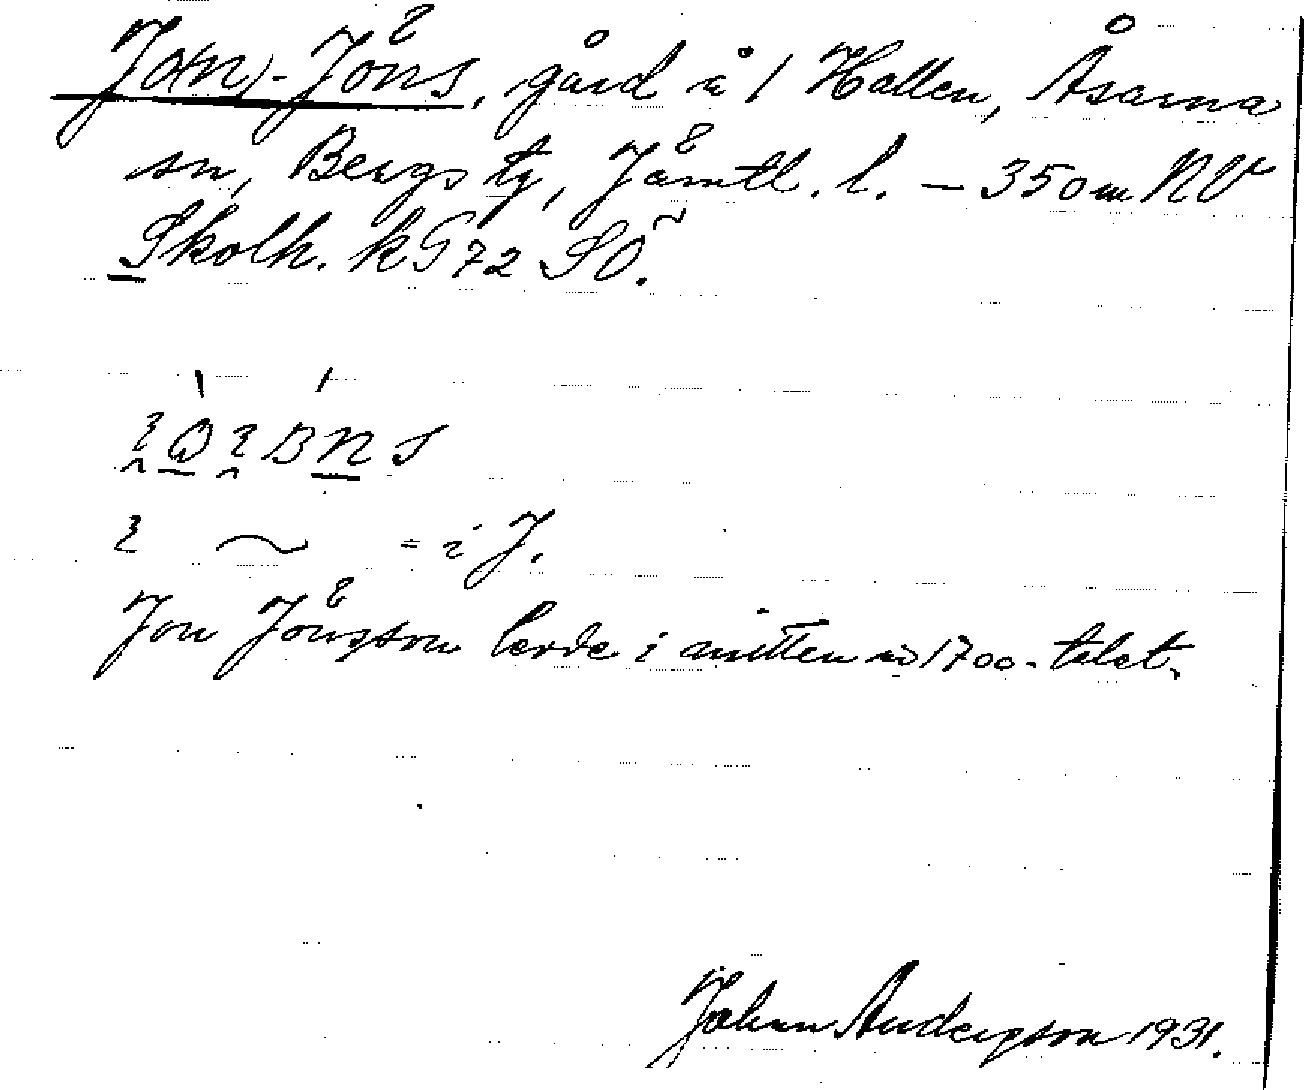 Jo(n)-Jöns, gård å 1 Hallen, Åsarna
sn, Bergs tg, Jämtl. l. – 350 m NV
Skolh. k G 72 SÖ.
= i J.
Jon Jönsson levde i mitten av 1700-talet.
Johan Andersson 1931.